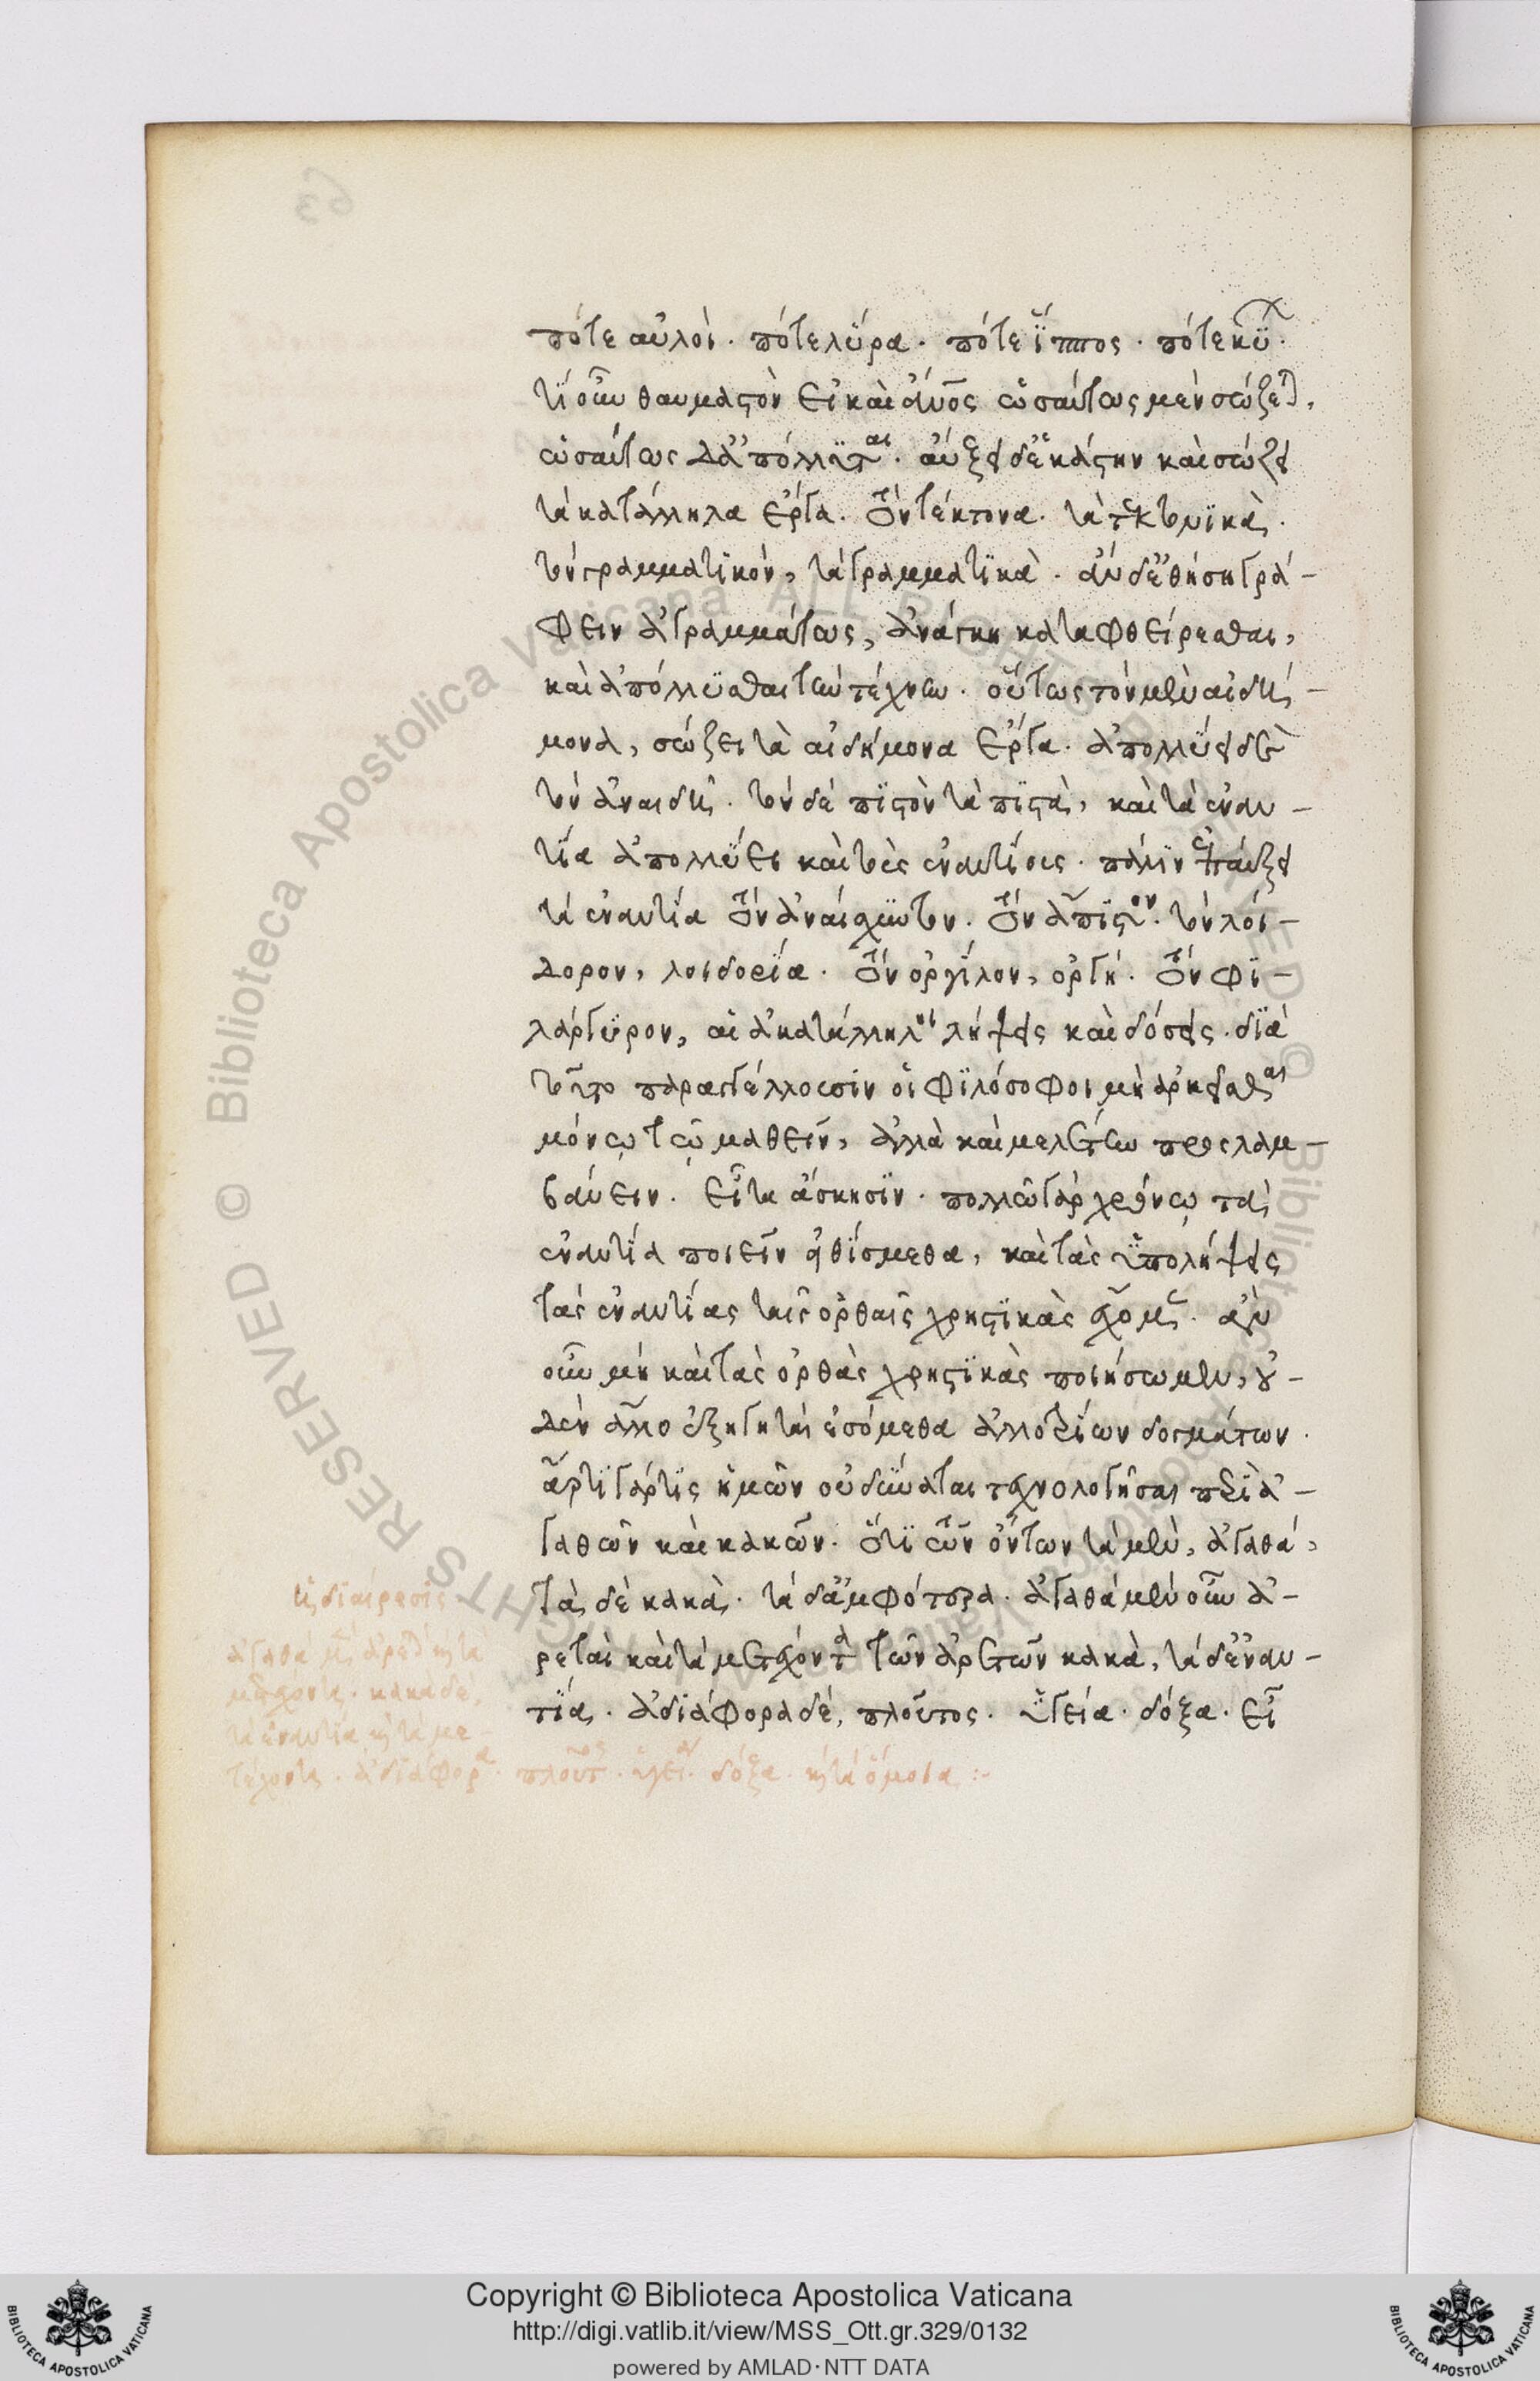 πότε αὐλοί. πότε λύρα. πότε ἵππος. πότε κύ
τί οὖν θαυμαστὸν εἰ καὶ ἄνος ὡσαύτως μὲν σώζεται,
ὡσαύτως δ' ἀπόλλυται. αὔξει δ' ἕκαστον καὶ σώζει
τὰ κατάλληλα ἔργα. τὸν τέκτονα. τὰ τεκτονικὰ.
τὸν γραμματικόν, τὰ γραμματικὰ. ἂν δ' ἐθίσῃ γρά-
φειν ἀγραμμάτως, ἀνάγκη καταφθείρεσθαι,
καὶ ἀπόλλυσθαι τὴν τέχνην. οὕτως τὸν μὲν αἰδή-
μονα, σώζει τὰ αἰδήμονα ἔργα. ἀπολλύει δὲ
τὸν ἀναιδῆ. τὸν δὲ πιστὸν τὰ πιστὰ, καὶ τὰ ἐναν-
τία ἀπολλύει καὶ τοὺς ἐναντίους. πάλιν ἐπαύξει
τὰ ἐναντία τὸν ἀναίσχυντον. τὸν ἄπιστον. τὸν λοί-
δορον, λοιδορία. τὸν ὀργίλον, ὀργή. τὸν φι-
λάργυρον, αἱ ἀκατάλληλοι λήψεις καὶ δόσεις. διὰ
τοῦτο παραγγέλλουσιν οἱ φιλόσοφοι μὴ ἀρκεῖσθαι
μόνῳ τῷ μαθεῖν, ἀλλὰ καὶ μελέτην προσλαμ-
βάνειν. εἶτα ἄσκησιν. πολλῷ γὰρ χρόνῳ τὰ
ἐναντία ποιεῖν εἰθίσμεθα, καὶ τὰς ὑπολήψεις
τὰς ἐναντίας ταῖς ὀρθαῖς χρηστικὰς ἔχομεν. ἂν
οὖν μὴ καὶ τὰς ὀρθὰς χρηστικὰς ποιήσωμεν, οὐ-
δὲν ἄλλο ἐξηγηταὶ ἐσόμεθα ἀλλοτρίων δογμάτων.
ἄρτι γάρ τις ἡμῶν οὐ δύναται τεχνολογῆσαι περὶ ἀ-
γαθῶν καὶ κακῶν. ὅτι τῶν ὄντων τὰ μὲν, ἀγαθά,
τὰ δὲ κακὰ. τὰ δ' ἀμφότερα. ἀγαθὰ μὲν οὖν ἀ-
ρεταὶ καὶ τὰ μετέχοντα τῶν ἀρετῶν κακὰ, τὰ δ' ἐναν-
τία. ἀδιάφορα δέ, πλοῦτος. ὑγεία. δόξα. εἶ
ἡ διαίρεσις
ἀγαθὰ μὲν ἀρεταὶ καὶ τὰ
μετέχοντα. κακὰ δὲ,
τὰ ἐναντία καὶ τὰ με
τέχοντα. ἀδιάφορα. πλοῦτος. ὑγεία. δόξα. καὶ τὰ ὅμοια :-
Copyright © Biblioteca Apostolica Vaticana
http://digi.vatlib.it/view/MSS_Ott.gr.329/0132
powered by AMLAD·NTT DATA